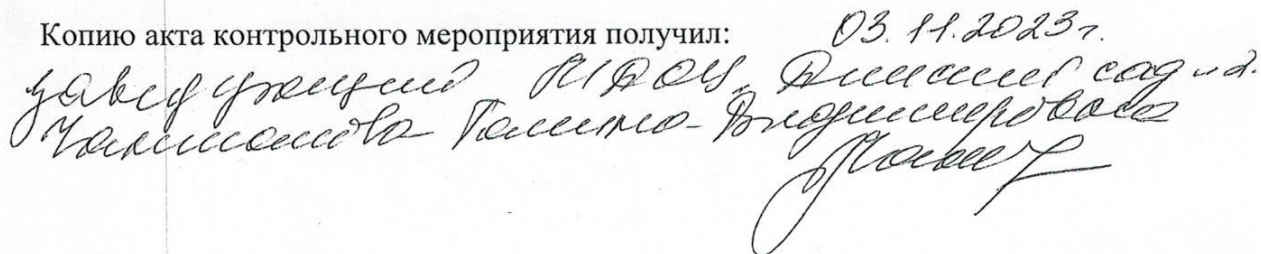 Копию акта контрольного мероприятия получил: 03.11.2023г.
заведующий МДОУ "Детский сад
Галина Владимировна